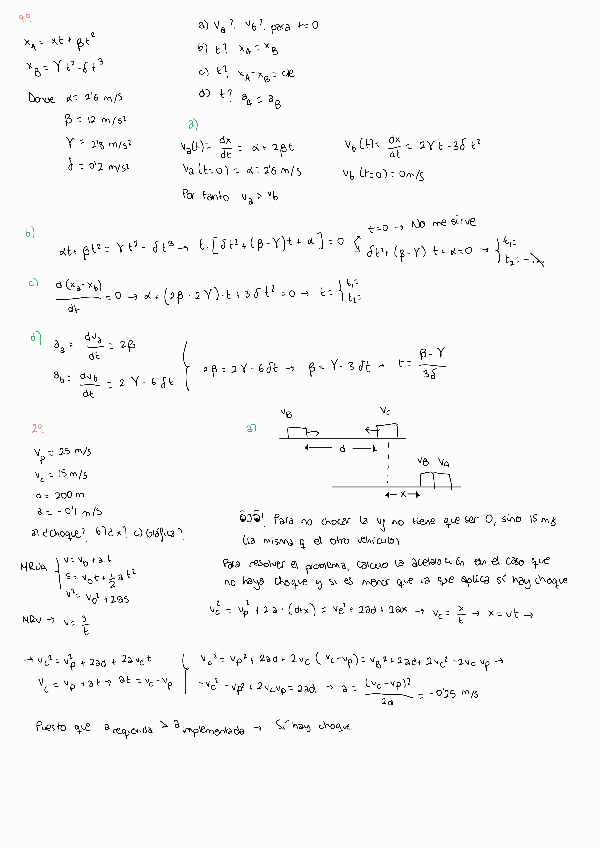 1º
x_A = αt + βt²
x_B = γt² - δt³
Donde α = 2'6 m/s
β = 1'2 m/s²
γ = 2'8 m/s²
δ = 0'2 m/s³
a) v_a? v_b? para t=0
b) t? x_A = x_B
c) t? x_A - x_B = cte
d) t? a_a = a_B
a)
v_a(t) = dx/dt = α + 2βt
v_a(t=0) = α = 2'6 m/s
Por tanto v_a > v_b
v_b(t) = dx/dt = 2γt - 3δt²
v_b(t=0) = 0 m/s
b)
αt + βt² = γt² - δt³ → t·[δt² + (β-γ)t + α] = 0 { t=0 → No me sirve
δt² + (β-γ)t + α = 0 → { t₁=
t₂ = -...
c) d(x_a - x_b)/dt = 0 → α + (2β - 2γ)·t + 3δt² = 0 → t = { t₁=
t₂=
d) a_a = dv_a/dt = 2β
a_b = dv_b/dt = 2γ - 6δt
2β = 2γ - 6δt → β = γ - 3δt → t = β-γ/3δ
2º
v_p = 25 m/s
v_c = 15 m/s
d = 200 m
a = -0'1 m/s
a) ¿choque? b) ¿x? c) Gráfica?
MRUA { v = v₀ + at
s = v₀t + 1/2 at²
v² = v₀² + 2as
MRU → v = s/t
a)
v_B v_c
d
v_B v_a
x
¡OJO! Para no chocar la vf no tiene que ser 0, sino 15 m/s
(la misma q el otro vehículo)
Para resolver el problema, calculo la aceleración en el caso que
no haya choque y si es menor que la que aplica sí hay choque
v_c² = v_p² + 2a·(d+x) = v_p² + 2ad + 2ax → v_c = x/t → x = vt →
→ v_c² = v_p² + 2ad + 2av_c t
v_c = v_p + at → at = v_c - v_p
v_c² = v_p² + 2ad + 2v_c(v_c - v_p) = v_p² + 2ad + 2v_c² - 2v_c v_p →
-v_c² - v_p² + 2v_c v_p = 2ad → a = (v_c - v_p)²/2d = -0'25 m/s
Puesto que a requerida > a implementada → Sí hay choque